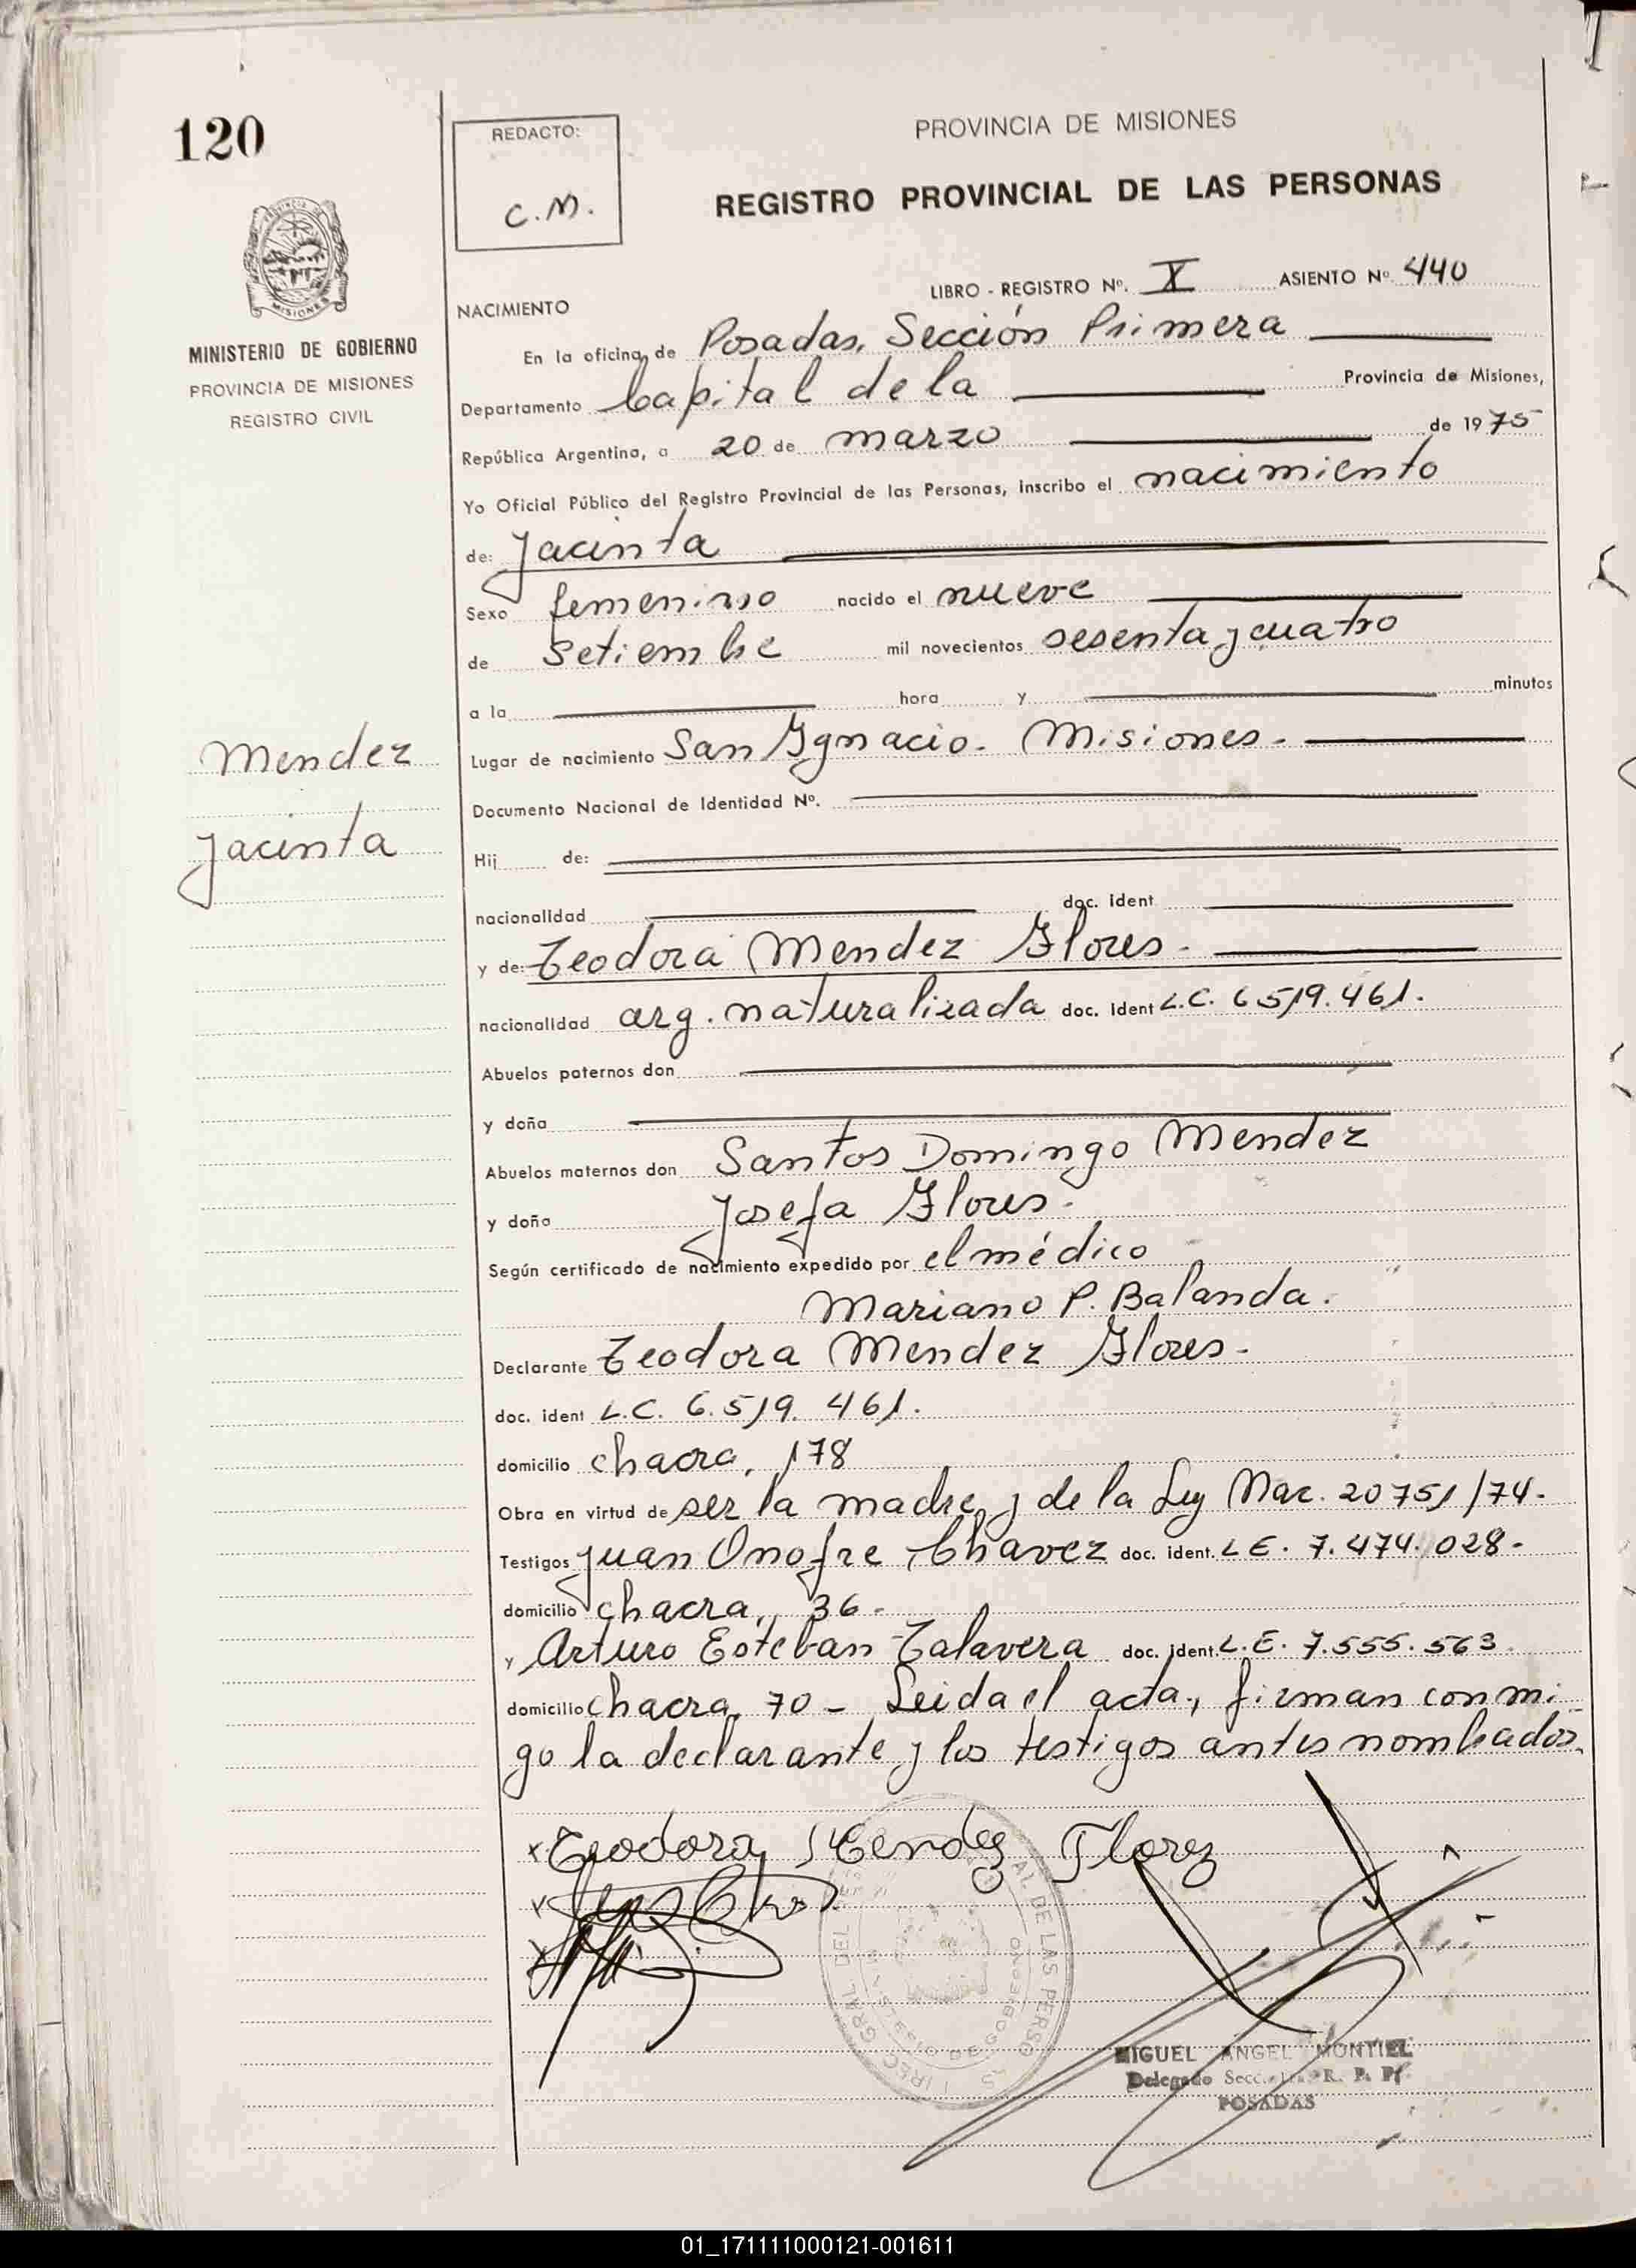 120
REDACTO:
C.M.
PROVINCIA DE MISIONES
REGISTRO PROVINCIAL DE LAS PERSONAS
MISIONES
MINISTERIO DE GOBIERNO
PROVINCIA DE MISIONES
REGISTRO CIVIL
LIBRO - REGISTRO Nº. X ASIENTO Nº. 440
NACIMIENTO
En la oficina de Posadas, Sección Primera
Departamento Capital de la Provincia de Misiones,
República Argentina, a 20 de marzo de 1975
Yo Oficial Público del Registro Provincial de las Personas, inscribo el nacimiento
de: Jacinta
Sexo femenino nacido el nueve
de Setiembre mil novecientos sesenta y cuatro
a la hora y minutos
Lugar de nacimiento San Ignacio. Misiones.
Mendez
Documento Nacional de Identidad Nº.
Jacinta
Hij de:
nacionalidad doc. ident
y de: Teodora Mendez Flores.
nacionalidad arg. naturalizada doc. ident L.C. 6.519.461.
Abuelos paternos don
y doña
Abuelos maternos don Santos Domingo Mendez
y doña Josefa Flores.
Según certificado de nacimiento expedido por el médico
Mariano P. Balanda.
Declarante Teodora Mendez Flores.
doc. ident L.C. 6.519.461.
domicilio chacra, 178
Obra en virtud de ser la madre y de la Ley Nac. 20751/74.
Testigos Juan Onofre Chavez doc. ident. L E. 7.474.028.
domicilio chacra, 36.
y Arturo Esteban Talavera doc. ident. L.E. 7.555.563.
domicilio chacra, 70 - Leida el acta, firman conmi
go la declarante y los testigos antes nombrados.
x Teodora Mendez Florez
MIGUEL ANGEL MONTIEL
Delegado Secc. 1ra. R. P. P.
POSADAS
01_171111000121-001611